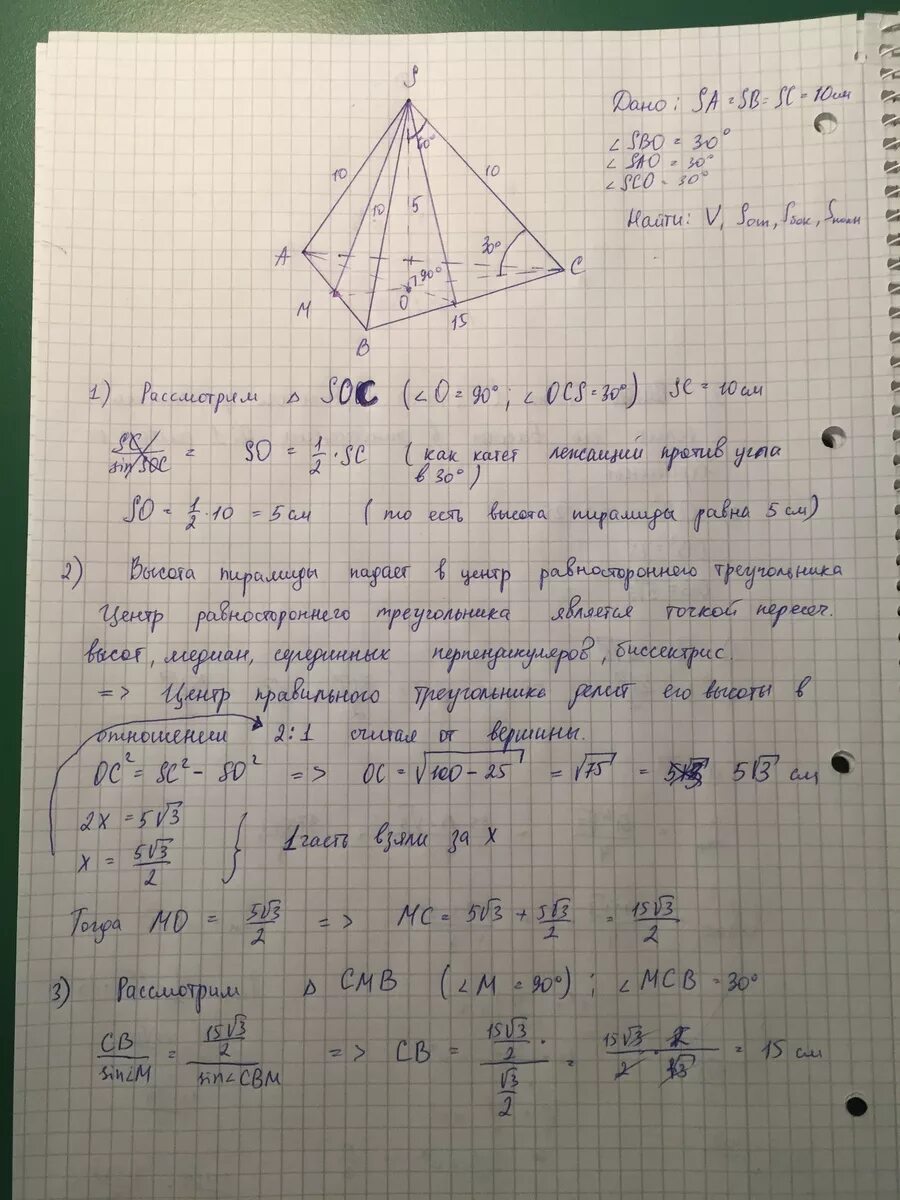 S
Дано: SA = SB = SC = 10 см
∠SBO = 30°
∠SAO = 30°
∠SCO = 30°
Найти: V, Sосн, Sбок, Sполн
60°
10
10
10
5
30°
90°
A
C
M
O
15
B
1) Рассмотрим △ SOC (∠O = 90°; ∠OCS = 30°) SC = 10 см
SC/sin SOC = SO = 1/2 · SC (как катет лежащий против угла
в 30°)
SO = 1/2 · 10 = 5 см (то есть высота пирамиды равна 5 см)
2) Высота пирамиды падает в центр равностороннего треугольника
Центр равностороннего треугольника является точкой пересеч.
высот, медиан, серединных перпендикуляров, биссектрис.
=> Центр правильного треугольника делит его высоты в
отношении 2:1 считая от вершины.
OC² = SC² - SO² => OC = √(100 - 25) = √75 = 5√3 см
2x = 5√3
x = 5√3/2 } 1 часть взяли за x
Тогда MO = 5√3/2 => MC = 5√3 + 5√3/2 = 15√3/2
3) Рассмотрим △ CMB (∠M = 90°); ∠MCB = 30°
CB/sin∠M = (15√3/2)/sin∠CBM => CB = (15√3/2)/(√3/2) = 15√3/2 · 2/√3 = 15 см